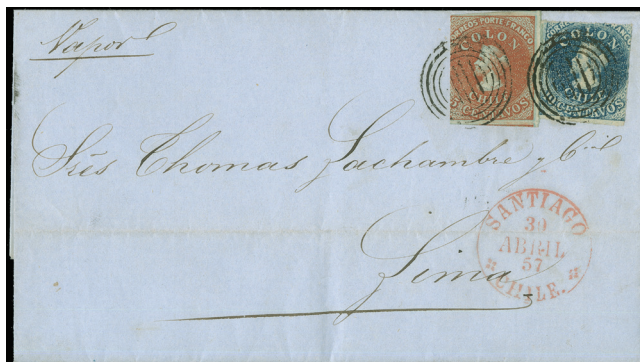 Vapor
CORREOS PORTE FRANCO
COLON
CHILE
5 CENTAVOS
CORREOS PORTE FRANCO
COLON
CHILE
CENTAVOS
Sres Thomas Lachambre y Cia
Lima
SANTIAGO
30
ABRIL
57
CHILE.